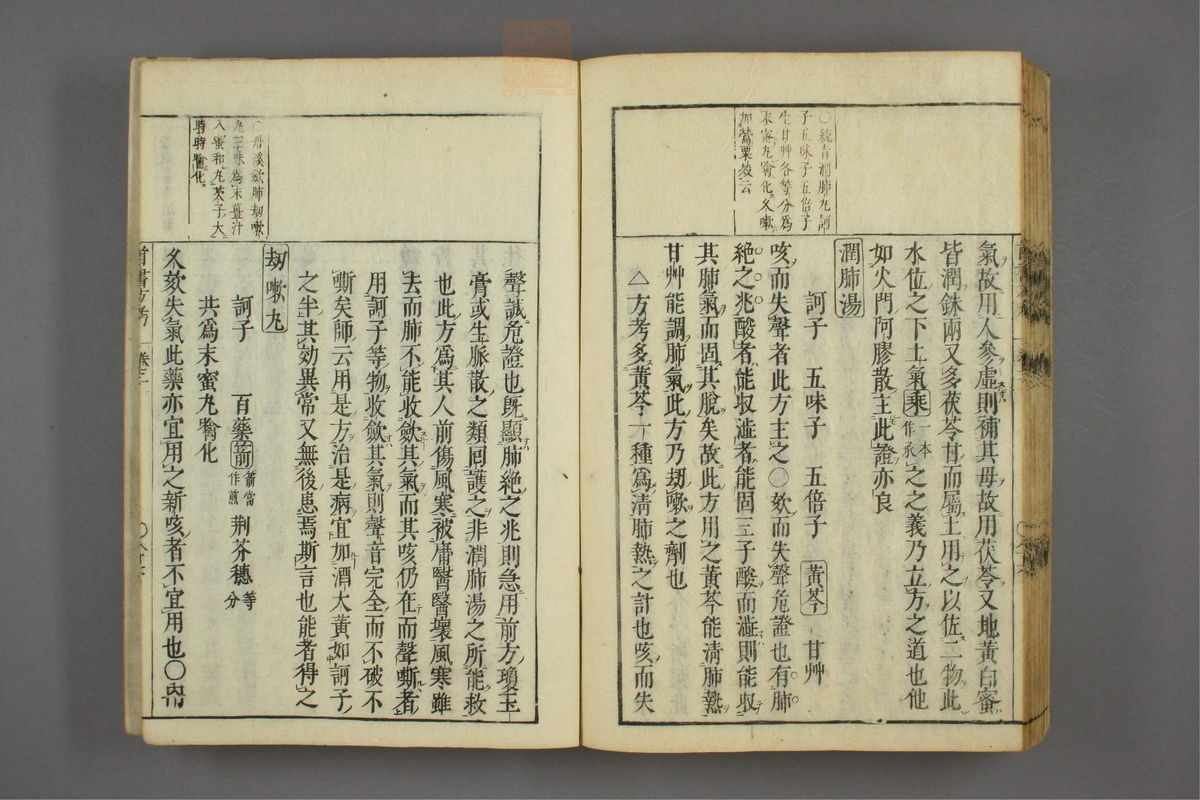 〇統旨潤肺丸訶
子五味子五倍子
生甘艸各等分爲
末蜜丸噙化久嗽
加鶯粟殼云
氣故用人參虛則補其母故用茯苓又地黃白蜜
皆潤銖兩又多茯苓甘而屬土用之以佐二物此
水位之下土氣乘一本作永之之義乃立方之道也他
如火門阿膠散主此證亦良
潤肺湯
訶子 五味子 五倍子 黃芩 甘艸
咳而失聲者此方主之〇欬而失聲危證也有肺
絶之兆酸者能収澁者能固三子酸而澁則能収
其肺氣而固其脫矣故此方用之黃芩能淸肺熱
甘艸能調肺氣此方乃刼嗽之劑也
△方考多黃芩一種爲淸肺熱之計也咳而失
〇丹溪歛肺刼嗽
丸三味爲末薑汁
入蜜和丸芡子大
時時噙化
聲誠危證也旣顯肺絶之兆則急用前方瓊玉
膏或生脈散之類囘護之非潤肺湯之所能救
也此方爲其人前傷風寒被庸醫醫壞風寒雖
去而肺不能收歛其氣而其咳仍在而聲嘶者
用訶子等物收歛其氣則聲音完全而不破不
嘶矣師云用是方治是病宜加酒大黃如訶子
之半其効異常又無後患焉斯言也能者得之
刼嗽丸
訶子 百藥箭箭當作煎 荆芥穗等分
共爲末蜜丸噙化
久欬失氣此藥亦宜用之新咳者不宜用也〇內